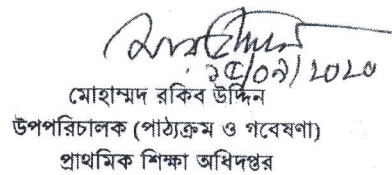 ১৫/০৯/২০২০
মোহাম্মদ রকিব উদ্দিন
উপপরিচালক (পাঠ্যক্রম ও গবেষণা)
প্রাথমিক শিক্ষা অধিদপ্তর